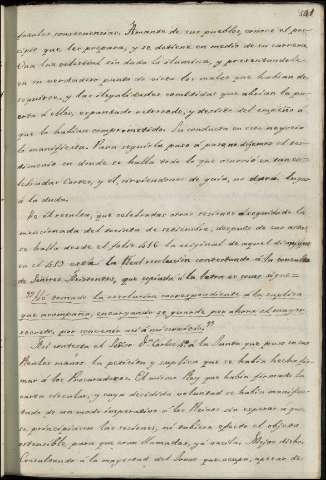 fatales consecuencias. Amante de sus pueblos, conoce el preci-
picio que les prepara, y se detiene en medio de su carrera.
Una luz celestial sin duda le ilumina, y presentandole
en su verdadero punto de vista los males que habian de
seguirse, y las ilegalidades cometidas que abrian la pu-
erta á ellos, espantado retrocede, y desiste del empeño á
que le habian comprometido. Su conducta en este negocio
lo manifiesta. Para seguirla paso á paso no dejemos el es-
pediente en donde se halla todo lo que ocurrió en tan ce-
lebradas Cortes, y él, sirviendonos de guia, no dará lugar
á la duda.
De él resulta, que celebradas otras sesiones á seguida de la
mencionada del treinta de setiembre, después de sus actas
se halla desde el folio 416 la original de aquel dia
en el 413 la Real resolucion contestando á la consulta
de Señores Asistentes, que copiada á la letra es como sigue =
"He tomado la resolucion correspondiente á la suplica
que acompaña, encargando se guarde por ahora el mayor
secreto, por convenir asi á mi servicio."
Asi contesta el Señor Dn. Carlos 4º á la Junta que puso en sus
Reales manos la peticion y suplica que se habia hecho fir-
mar á los Procuradores. El mismo Rey que habia firmado la
carta circular, y cuya decidida voluntad se habia manifes-
tado de un modo imperativo á los Reinos sin esperar á que
se principiasen las sesiones, ni tubiera efecto el objeto
ostensible, para que eran llamadas, ya vacila. Mejor dicho
Consultando á la magestad del Trono que ocupa, apesar de